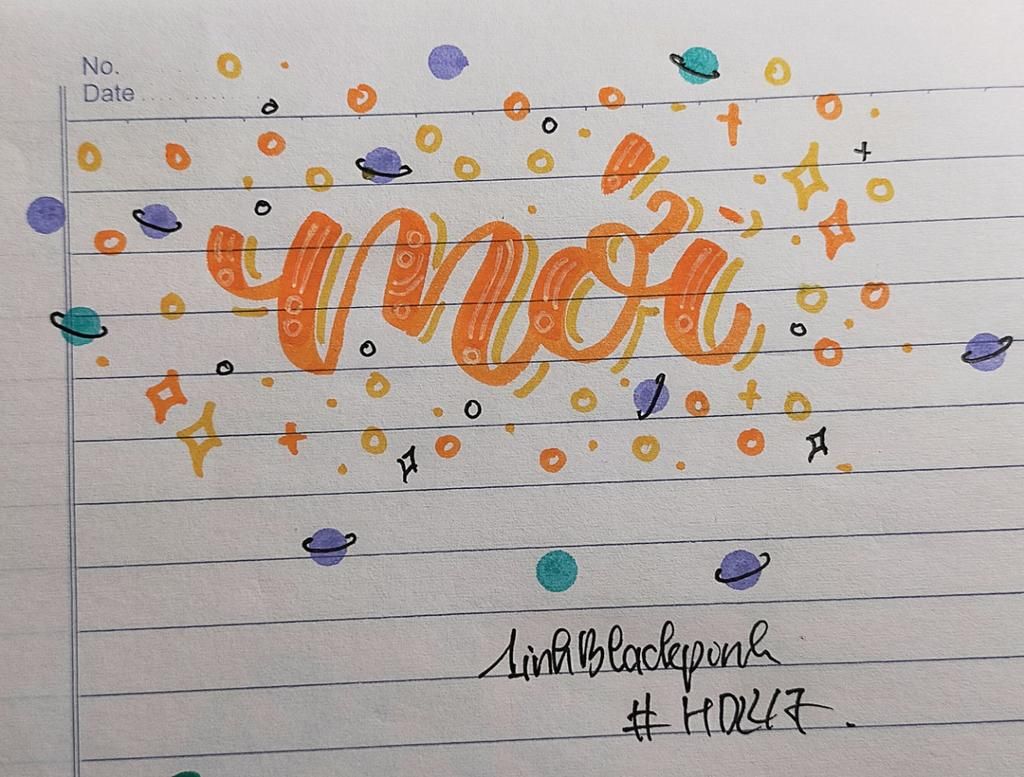 No.
Date
mới
LinhBlackpink